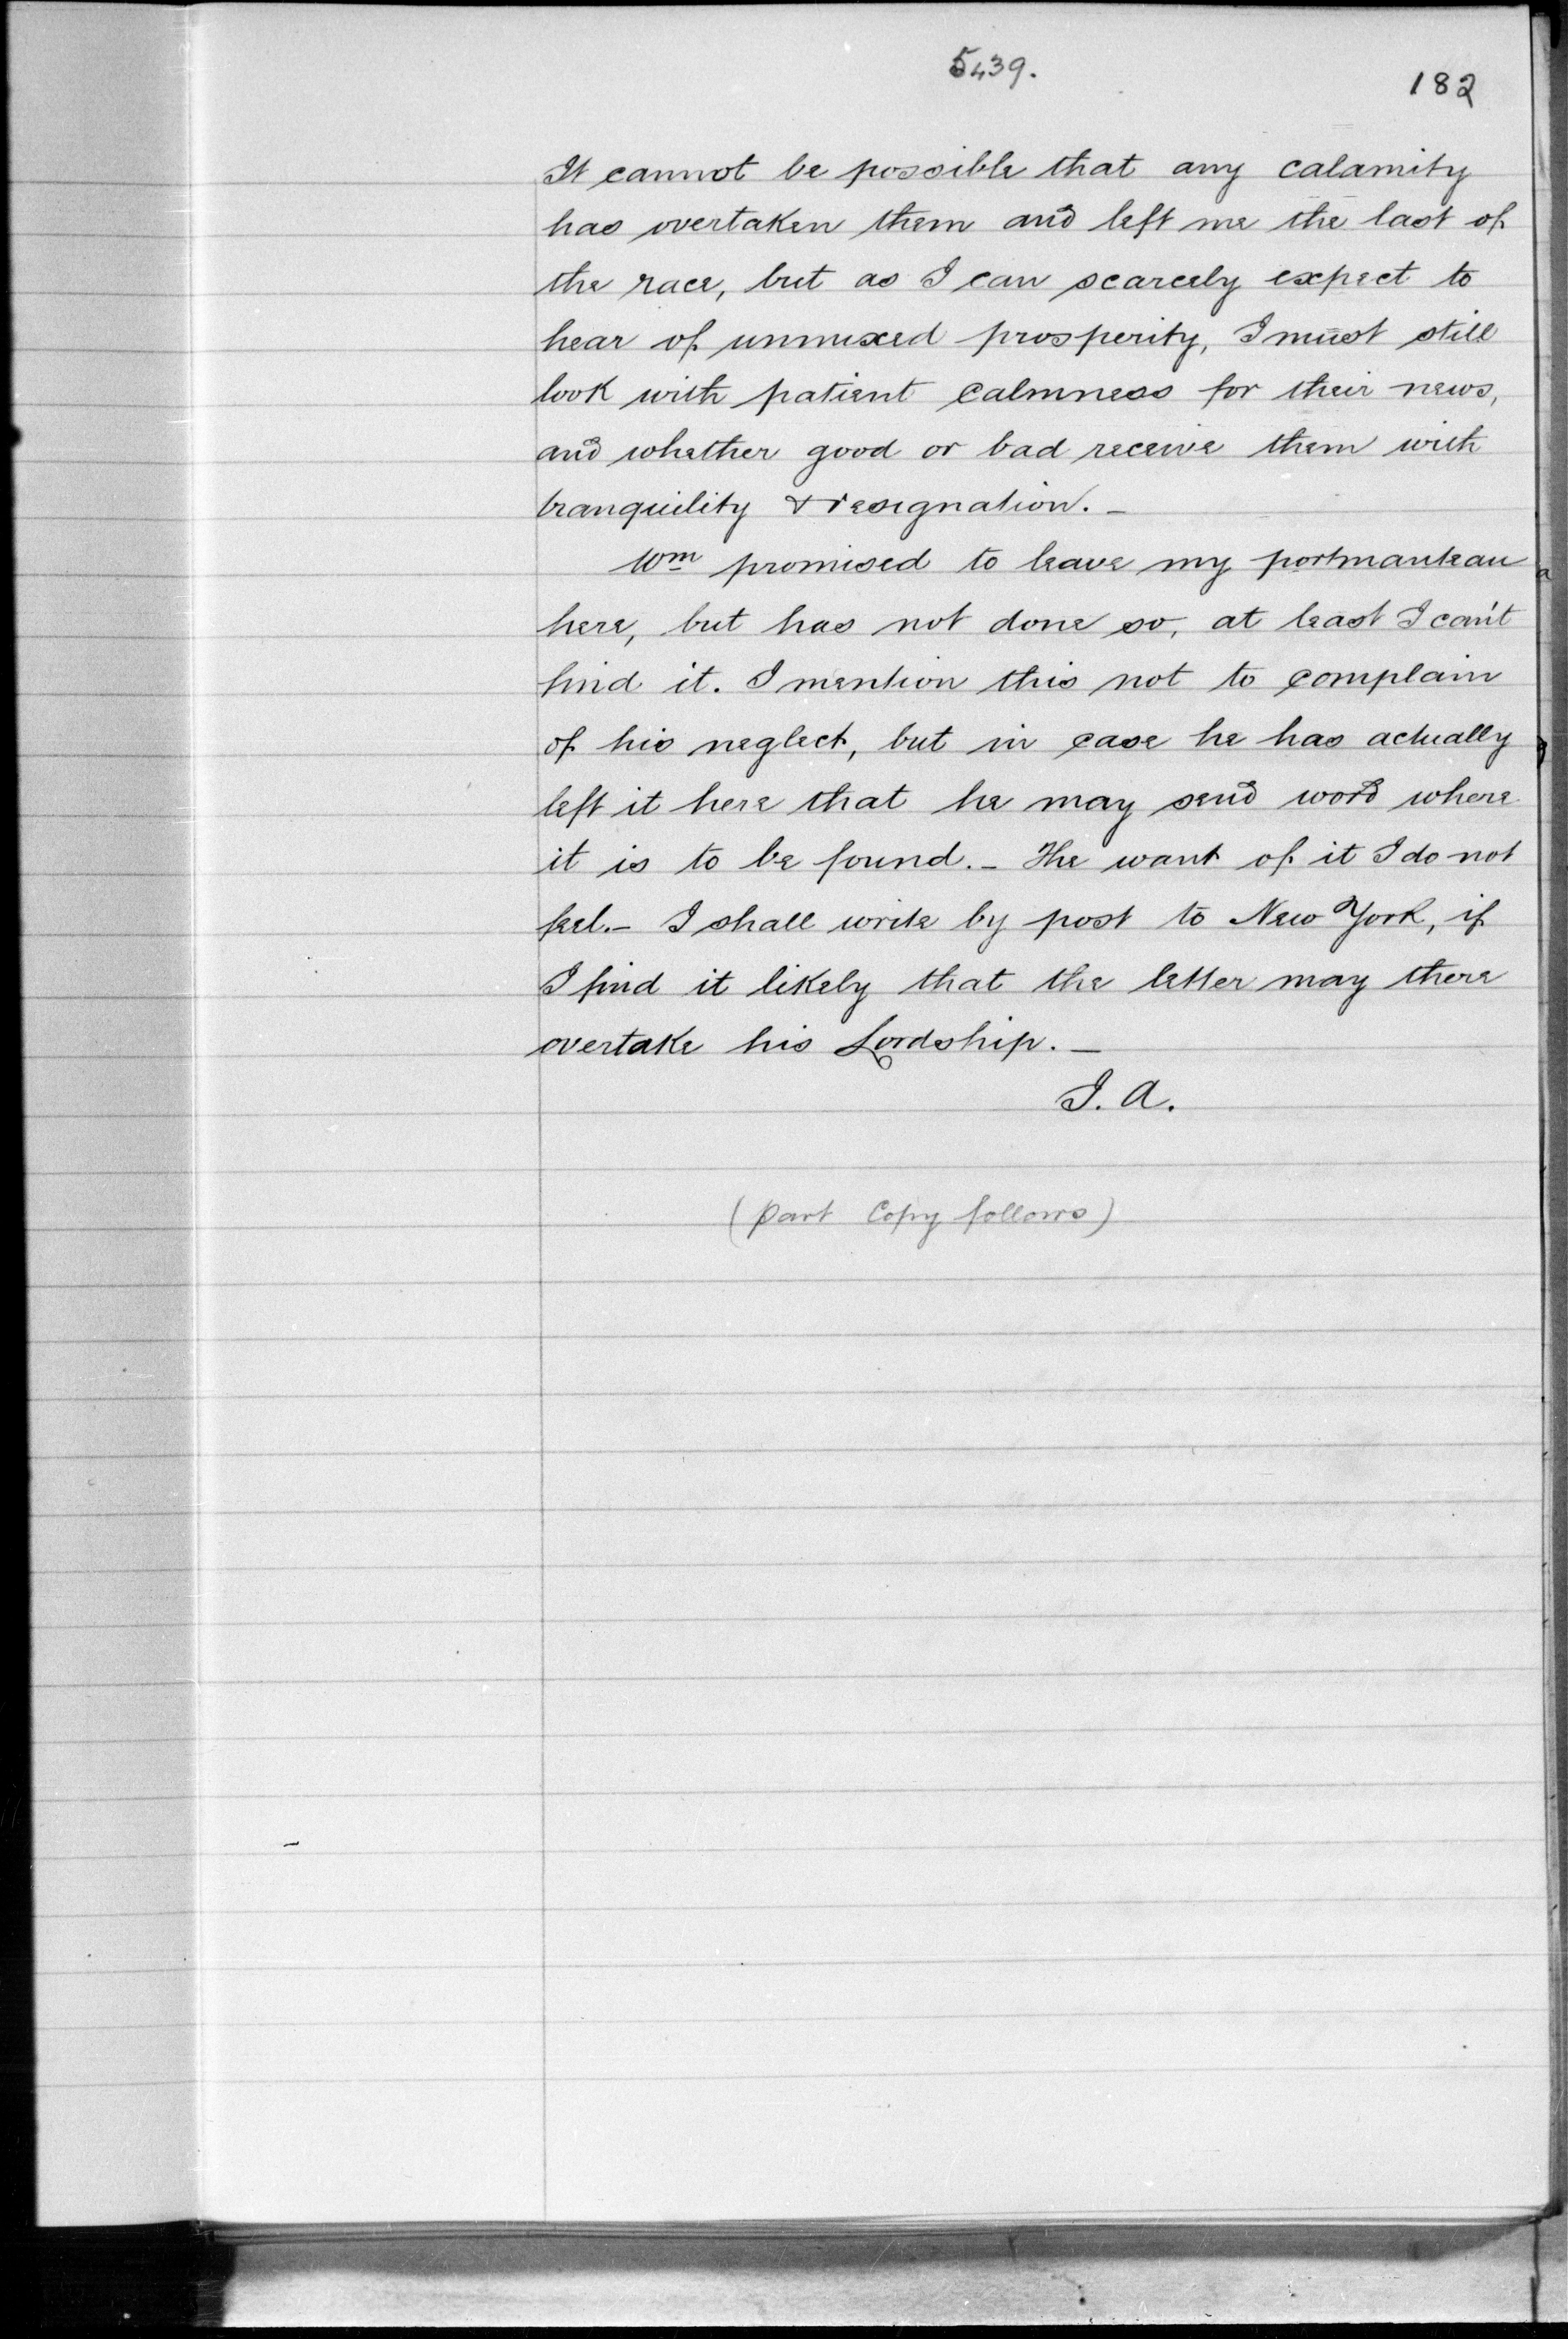 5439.
182
It cannot be possible that any calamity
has overtaken them and left me the last of
the race, but as I can scarcely expect to
hear of unmixed prosperity, I must still
look with patient calmness for their news,
and whether good or bad receive them with
tranquility & resignation. –
Wm promised to leave my portmanteau
here, but has not done so, at least I can't
find it. I mention this not to complain
of his neglect, but in case he has actually
left it here that he may send word where
it is to be found. – The want of it I do not
feel. – I shall write by post to New York, if
I find it likely that the letter may there
overtake his Lordship. –
I. A.
(Part Copy follows)